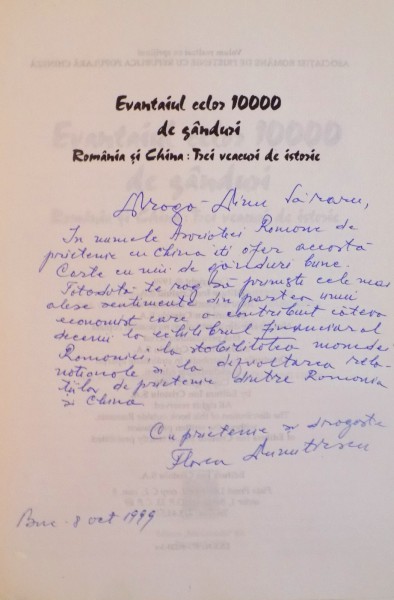 Evantaiul celor 10000
de gânduri
România și China: Trei veacuri de istorie
Dinu Săraru,
În numele Asociației Romane de
prietenie cu China iți ofer această
Carte cu mii de gânduri bune.
Totodată te rog să primești cele mai
alese sentimente din partea unui
economist care a contribuit câteva
decenii la echilibrul financiar al
Romaniei, la stabilitatea monedei
naționale și la dezvoltarea rela-
țiilor de prietenie dintre Romania
și China
Cu prietenie și dragoste
Florea Dumitrescu
Buc. 8 oct 1999